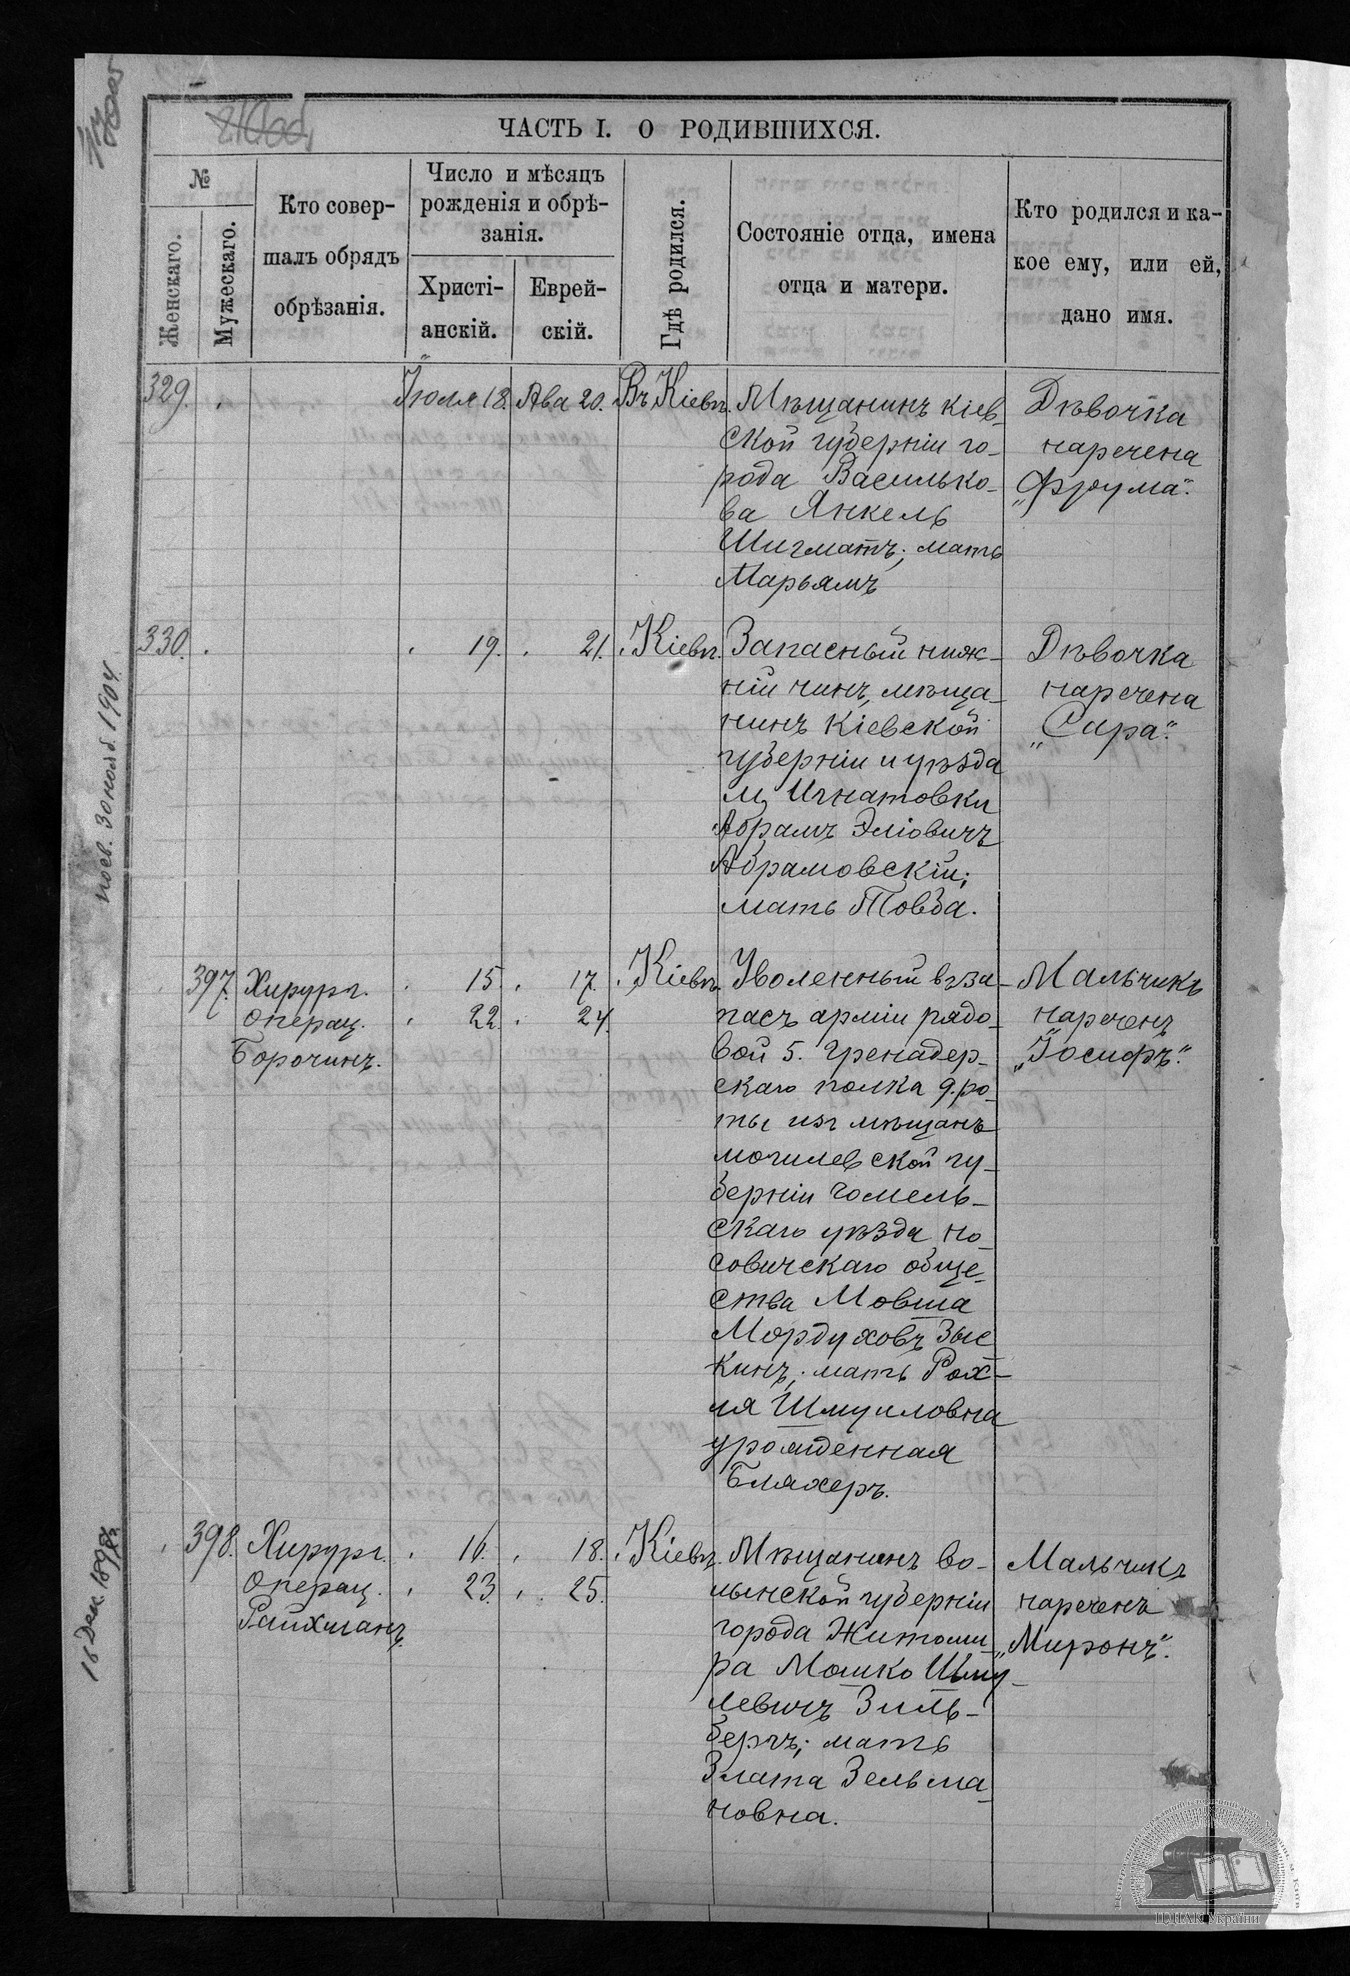 ЧАСТЬ I. О РОДИВШИХСЯ.
№
Женскаго.
Мужескаго.
Кто совер-
шалъ обрядъ
обрѣзанія.
Число и мѣсяцъ
рожденія и обрѣ-
занія.
Христі-
анскій.
Еврей-
скій.
Гдѣ родился.
Состояніе отца, имена
отца и матери.
Кто родился и ка-
кое ему, или ей,
дано имя.
329.
Іюля 18.
Ава 20.
Въ Кіевѣ.
Мѣщанинъ кіев-
ской губерніи го-
рода Василько-
ва Янкель
Шигматъ; мать
Марьямъ
Дѣвочка
наречена
„Фрума".
330.
19.
21.
Кіевѣ.
Запасный ниж-
ній чинъ, мѣща-
нинъ Кіевской
губерніи и уѣзда
м. Игнатовки
Абрамъ Эліовичъ
Абрамовскій;
мать Товба.
Дѣвочка
наречена
„Сира".
397.
Хирург.
операц.
Борочинъ.
15.
22.
17.
24.
Кіевѣ.
Уволенный въ за-
пасъ арміи рядо-
вой 5. Гренадер-
скаго полка 9. ро-
ты изъ мѣщанъ
могилевской гу-
берніи Гомель-
скаго уѣзда но-
совичскаго обще-
ства Мовша
Мордуховъ Зыс
кинъ; мать Рох-
ля Шмуиловна
урожденная
Бляхеръ.
Мальчикъ
нареченъ
„Іосифъ".
398.
Хирург.
Операц.
Райхманъ.
16.
23.
18.
25.
Кіевѣ.
Мѣщанинъ во-
лынской губерніи
города Житоми-
ра Мошко Шму-
левичъ Зиль-
бергъ; мать
Злата Зельма-
новна.
Мальчикъ
нареченъ
„Миронъ".
ЦДІАК України